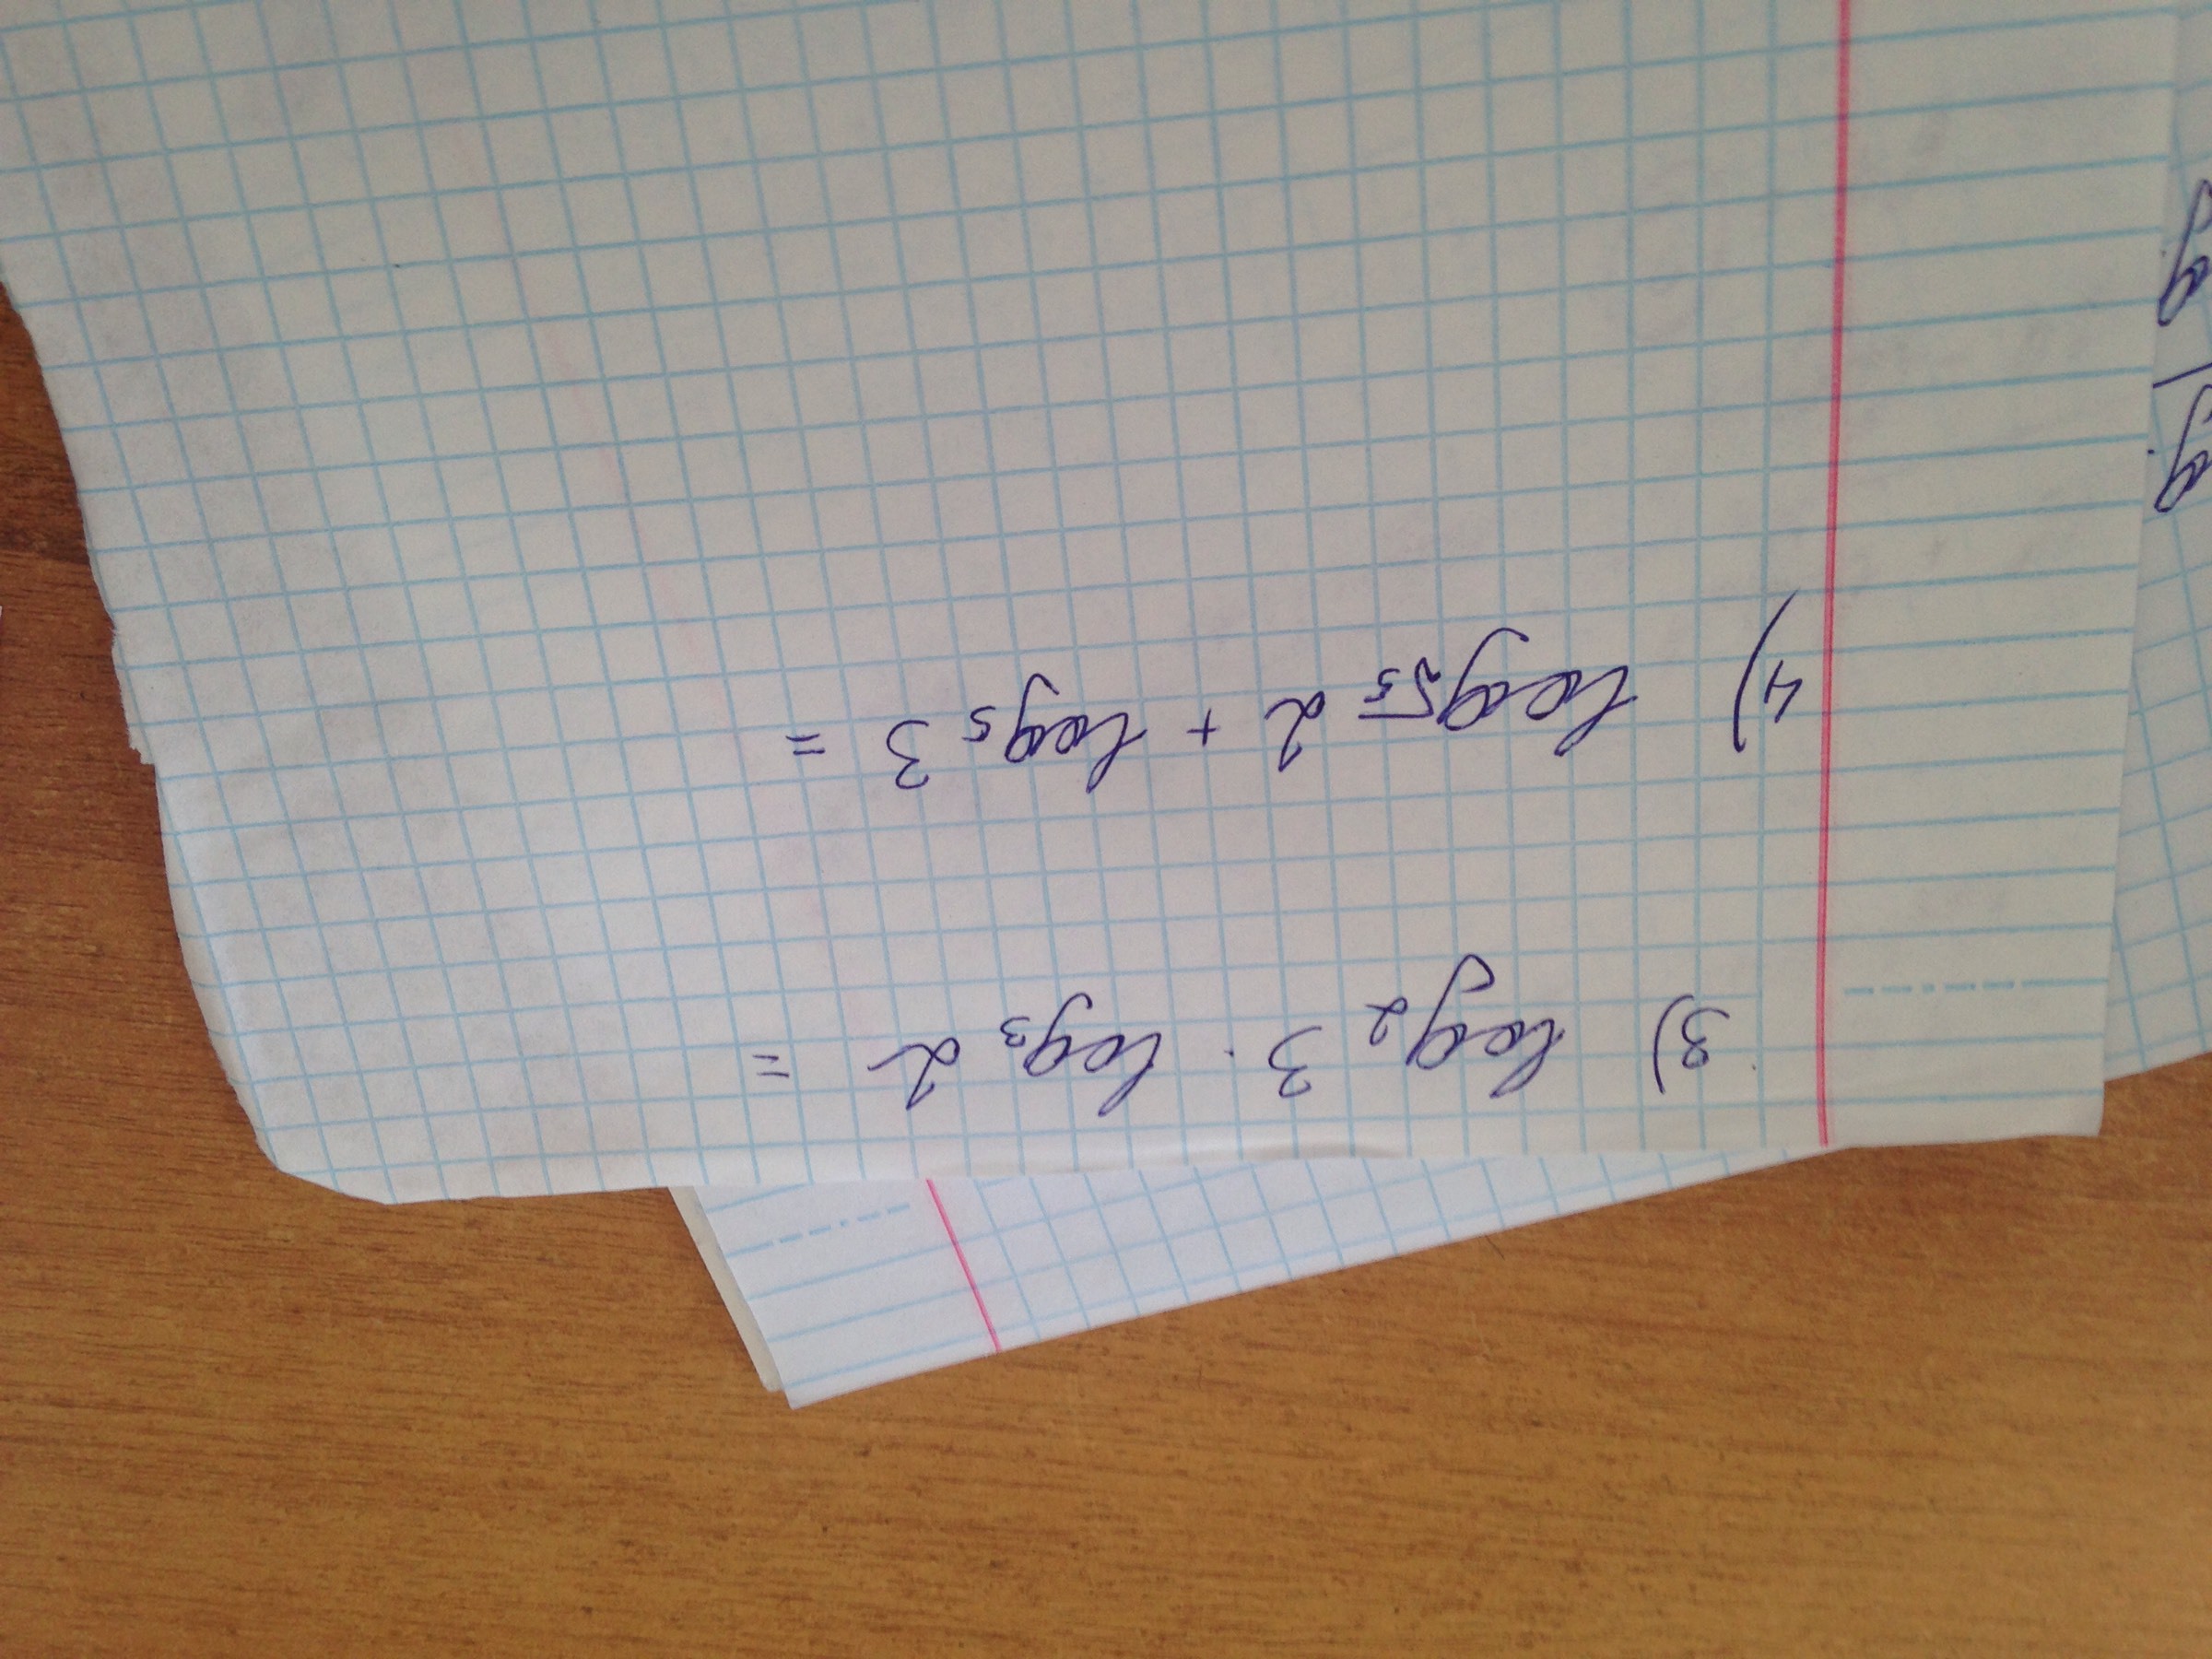 3) log₂ 3 · log₃ 2 =
4) log√5 2 + log₅ 3 =